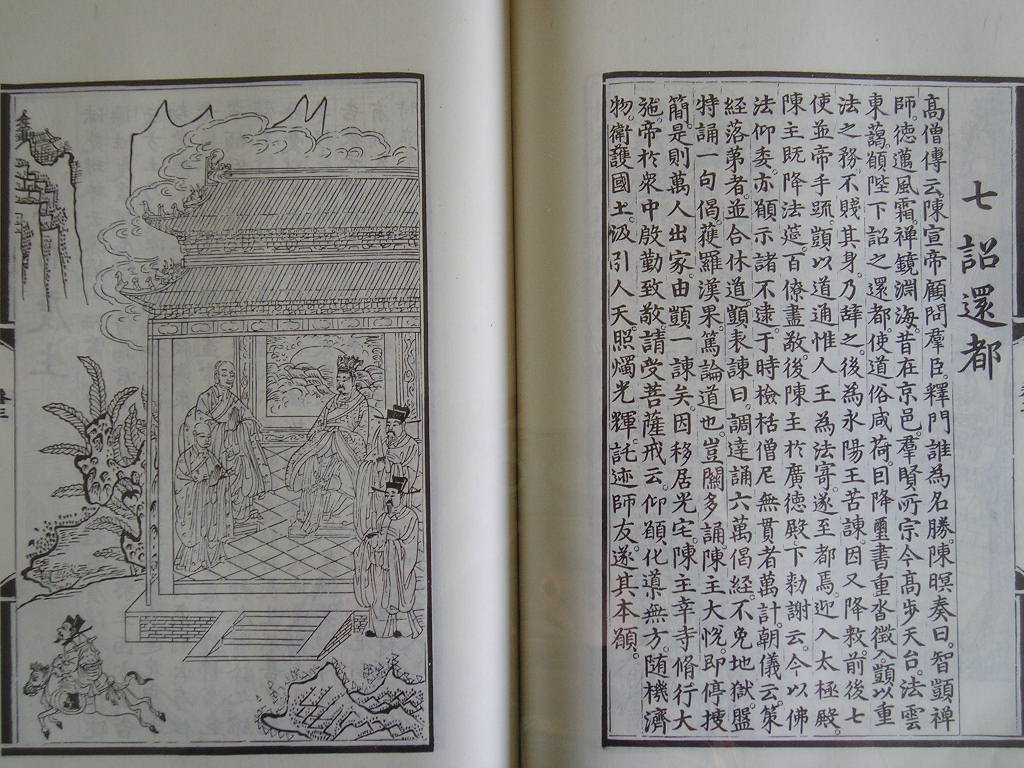 七詔還都
高僧傳云。陳宣帝顧問羣臣。釋門誰為名勝。陳暝奏曰。智顗禪
師。德邁風霜。禪鏡淵海。昔在京邑。羣賢所宗。今高步天台。法雲
東藹。願陛下詔之還都。使道俗咸荷。因降璽書重沓徵入。顗以重
法之務。不賤其身。乃辭之。後為永陽王苦諫。因又降敕。前後七
使。並帝手疏。顗以道通惟人。王為法寄。遂至都焉。迎入太極殿。
陳主既降法莚。百僚盡敬。後陳主於廣德殿下勅謝云。今以佛
法仰委。亦願示諸不逮。于時檢栝僧尼。無貫者萬計。朝儀云。策
經落第者。並合休道。顗表諫曰。調達誦六萬偈經。不免地獄。盤
特誦一句偈。獲羅漢果。篤論道也。豈關多誦。陳主大悅。即停搜
簡。是則萬人出家。由顗一諫矣。因移居光宅。陳主幸寺。脩行大
施。帝於衆中殷勤致敬。請受菩薩戒云。仰願化導無方。隨機濟
物。衛護國土。汲引人天。照燭光輝。託迹師友。遂其本願。